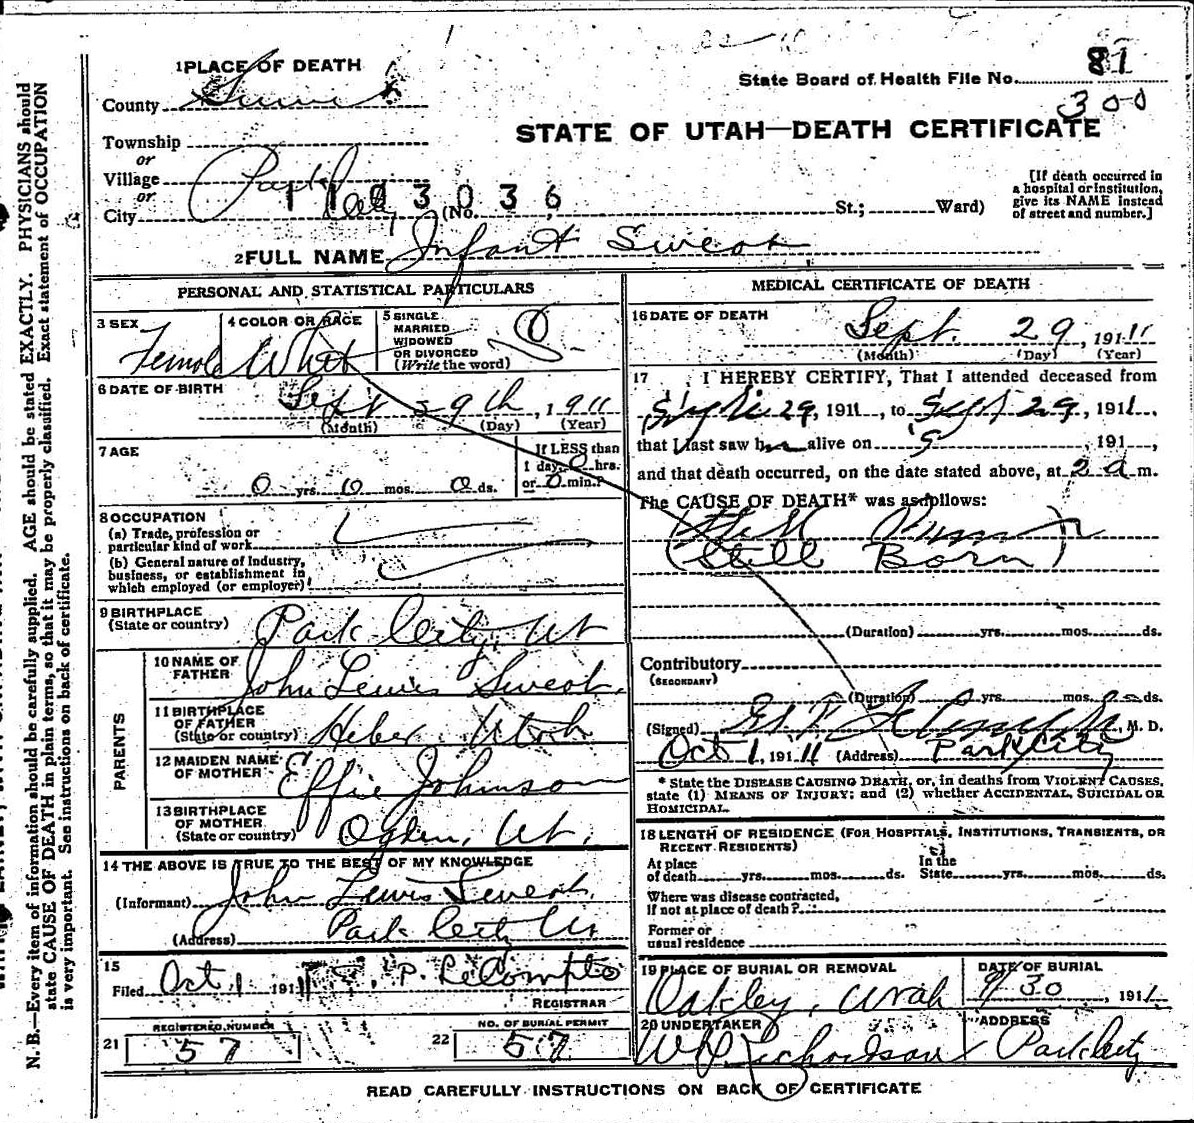 81
1 PLACE OF DEATH
State Board of Health File No.
300
County Summit
STATE OF UTAH—DEATH CERTIFICATE
Township
or
Village
or
City Park City (No. St.; Ward)
1103036
[If death occurred in a hospital or institution, give its NAME instead of street and number.]
2 FULL NAME Infant Sweat
PERSONAL AND STATISTICAL PARTICULARS
3 SEX Female
4 COLOR OR RACE White
5 SINGLE MARRIED WIDOWED OR DIVORCED (Write the word)
6 DATE OF BIRTH Sept 29th, 1911
(Month) (Day) (Year)
7 AGE
If LESS than 1 day, 0 hrs. or 0 min.?
0 yrs. 0 mos. 0 ds.
8 OCCUPATION
(a) Trade, profession or particular kind of work
(b) General nature of Industry, business, or establishment in which employed (or employer)
9 BIRTHPLACE (State or country) Park City, Ut
PARENTS
10 NAME OF FATHER John Lewis Sweat
11 BIRTHPLACE OF FATHER (State or country) Heber Utah
12 MAIDEN NAME OF MOTHER Effie Johnson
13 BIRTHPLACE OF MOTHER (State or country) Ogden, Ut.
14 THE ABOVE IS TRUE TO THE BEST OF MY KNOWLEDGE
(Informant) John Lewis Sweat
(Address) Park City Ut
15
Filed Oct 1 1911
REGISTRAR
REGISTERED NUMBER
21 57
NO. OF BURIAL PERMIT
22 57
MEDICAL CERTIFICATE OF DEATH
16 DATE OF DEATH
Sept. 29, 1911
(Month) (Day) (Year)
17 I HEREBY CERTIFY, That I attended deceased from
Sept 29, 1911, to Sept 29, 1911,
that I last saw h alive on , 191 ,
and that death occurred, on the date stated above, at 2 a m.
The CAUSE OF DEATH* was as follows:
(Still Born)
(Duration) yrs. mos. ds.
Contributory
(SECONDARY)
(Duration) yrs. mos. ds.
(Signed) M. D.
Oct 1, 1911 (Address) Park City
* State the DISEASE CAUSING DEATH, or, in deaths from VIOLENT CAUSES, state (1) MEANS OF INJURY; and (2) whether ACCIDENTAL, SUICIDAL OR HOMICIDAL.
18 LENGTH OF RESIDENCE (FOR HOSPITALS, INSTITUTIONS, TRANSIENTS, OR RECENT RESIDENTS)
At place of death yrs. mos. ds. In the State yrs. mos. ds.
Where was disease contracted, if not at place of death?
Former or usual residence
19 PLACE OF BURIAL OR REMOVAL Oakley, Utah
DATE OF BURIAL 9/30, 1911
20 UNDERTAKER Richardson
ADDRESS Park City
READ CAREFULLY INSTRUCTIONS ON BACK OF CERTIFICATE
N. B.—Every item of information should be carefully supplied. AGE should be stated EXACTLY. PHYSICIANS should
state CAUSE OF DEATH in plain terms, so that it may be properly classified. Exact statement of OCCUPATION
is very important. See instructions on back of certificate.